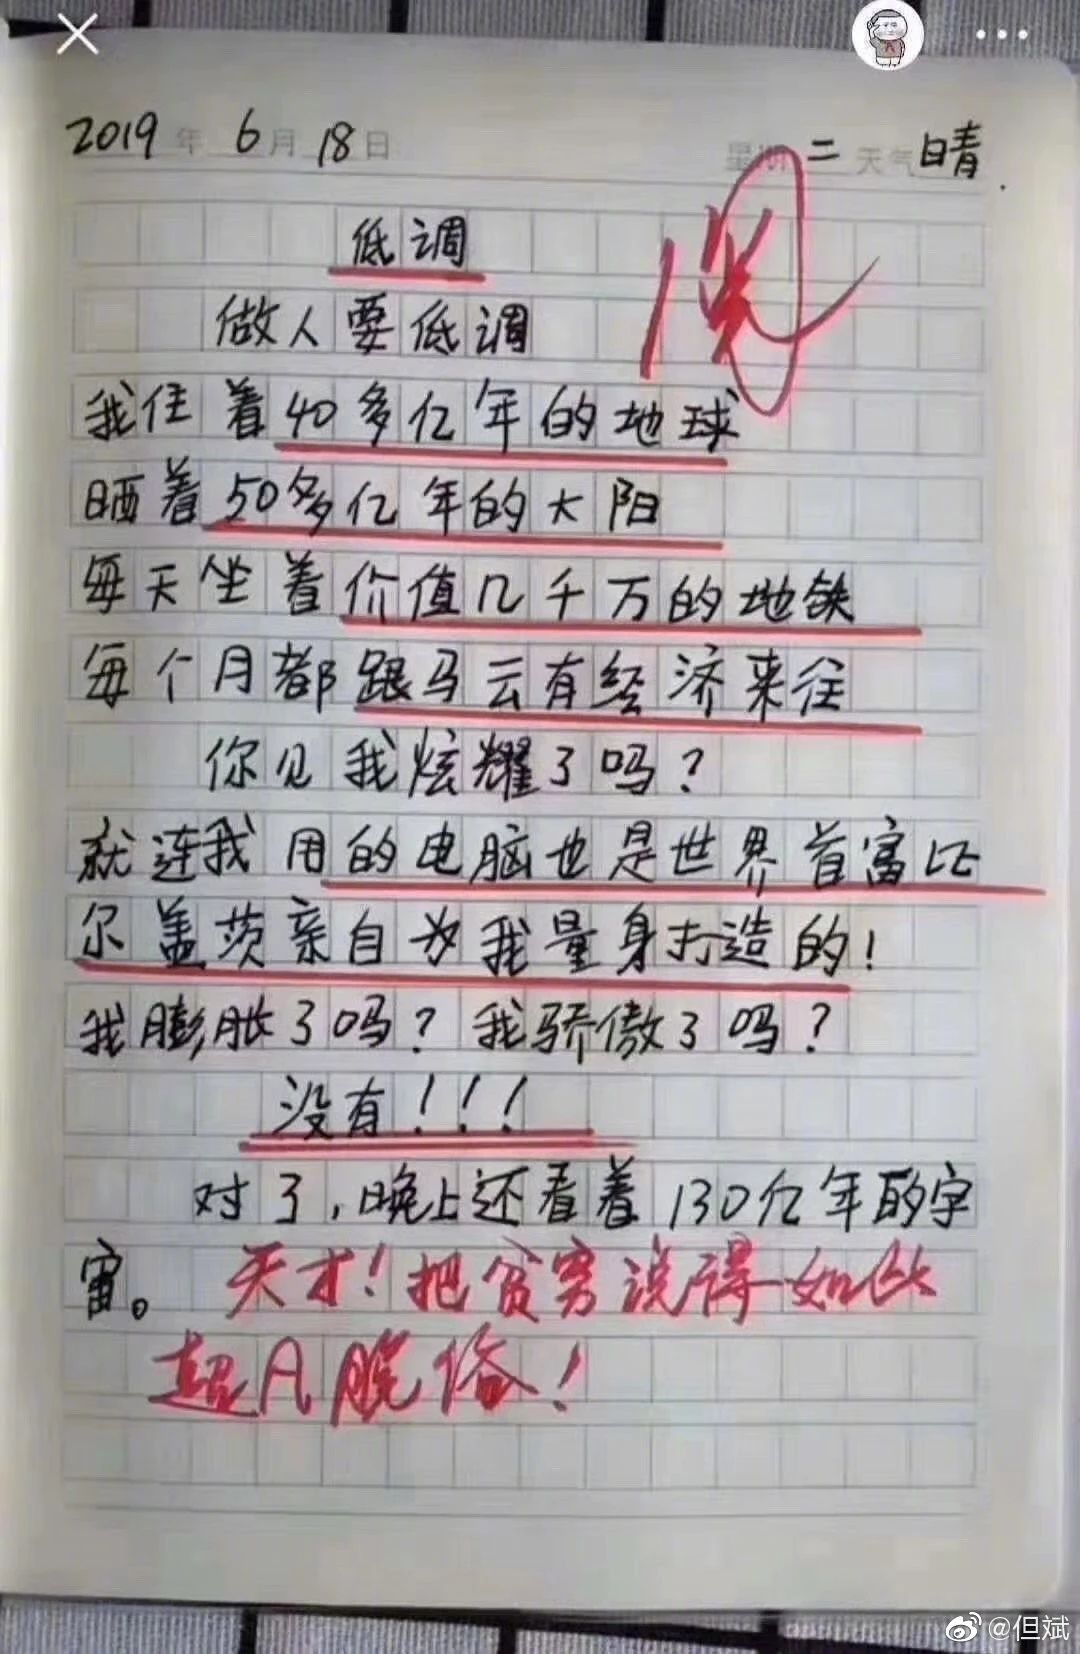 2019年 6月 18日 星期二 天气 晴
低调
做人要低调
我住着40多亿年的地球
晒着50多亿年的大阳
每天坐着价值几千万的地铁
每个月都跟马云有经济来往
你见我炫耀了吗？
就连我用的电脑也是世界首富比
尔盖茨亲自为我量身打造的！
我膨胀了吗？我骄傲了吗？
没有！！！
对了，晚上还看着130亿年的宇
宙。天才！把贫穷说得如此
超凡脱俗！
@但斌